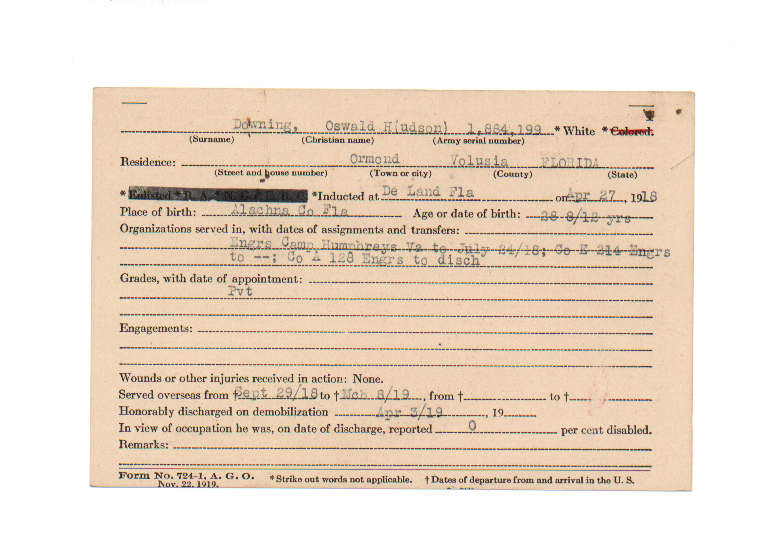 Downing, Oswald H(udson) 1,884,199 * White * Colored.
(Surname) (Christian name) (Army serial number)
Residence: Ormond Volusia FLORIDA
(Street and house number) (Town or city) (County) (State)
* Enlisted * R. A. * N. G. * E. R. C. * Inducted at De Land Fla on Apr 27, 1918
Place of birth: Alachna Co Fla Age or date of birth: 28 8/12 yrs
Organizations served in, with dates of assignments and transfers:
Engrs Camp Humphreys Va to July 24/18; Co E 214 Engrs
to --; Co A 128 Engrs to disch
Grades, with date of appointment:
Pvt
Engagements:
Wounds or other injuries received in action: None.
Served overseas from † Sept 29/18 to † Mch 8/19, from † to †
Honorably discharged on demobilization Apr 3/19, 19
In view of occupation he was, on date of discharge, reported 0 per cent disabled.
Remarks:
Form No. 724-1, A. G. O. * Strike out words not applicable. † Dates of departure from and arrival in the U. S.
Nov. 22, 1919.